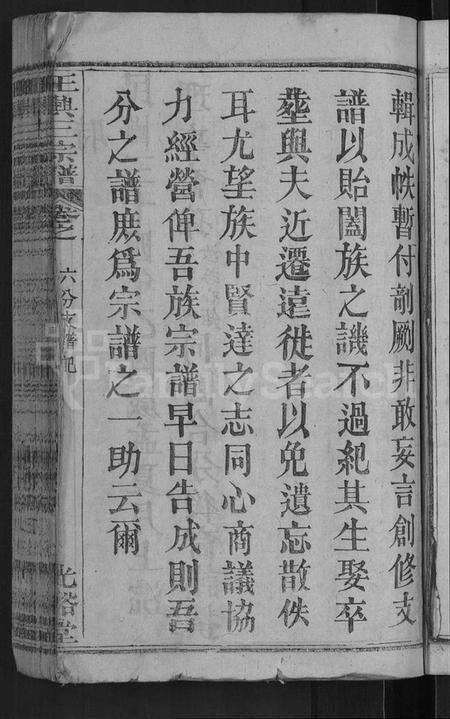 輯成帙暫付剞劂非敢妄言創修支
譜以貽闔族之譏不過紀其生娶卒
塟與夫近遷遠徙者以免遺忘散佚
耳尤望族中賢達之志同心商議協
力經營俾吾族宗譜早日告成則吾
分之譜庶為宗譜之一助云爾
王興三宗譜
六分支譜記
光裕堂
FamilySearch